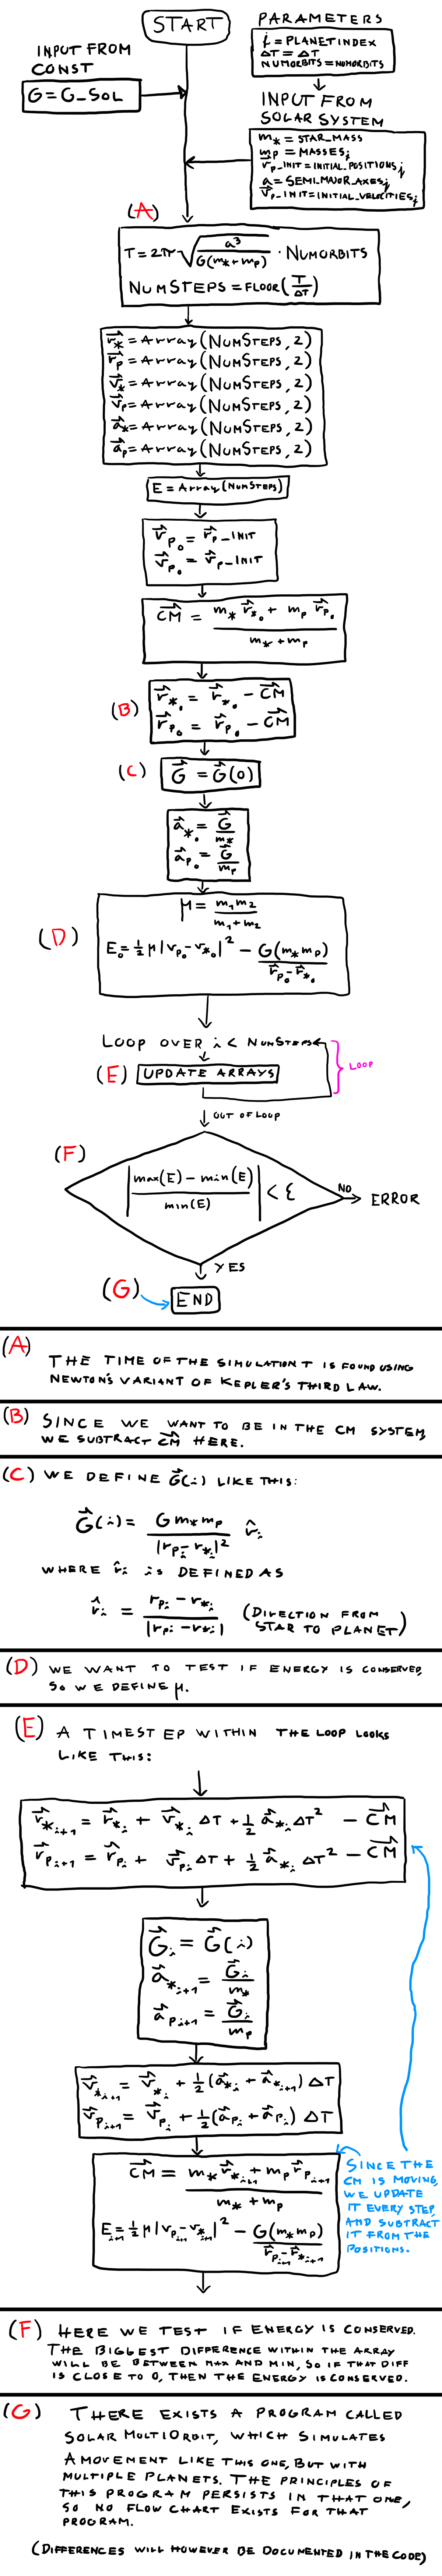 START
INPUT FROM
CONST
G = G_SOL
PARAMETERS
j = PLANETINDEX
ΔT = ΔT
NUMORBITS = NUMORBITS
INPUT FROM
SOLAR SYSTEM
m* = STAR_MASS
mp = MASSES j
r⃗p_INIT = INITIAL_POSITIONS j
a = SEMI_MAJOR_AXES j
v⃗p_INIT = INITIAL_VELOCITIES j
(A)
T = 2π √(a³/(G(m*+mp))) · NUMORBITS
NUMSTEPS = FLOOR(T/ΔT)
r⃗* = Array(NUMSTEPS, 2)
r⃗p = Array(NUMSTEPS, 2)
v⃗* = Array(NUMSTEPS, 2)
v⃗p = Array(NUMSTEPS, 2)
a⃗* = Array(NUMSTEPS, 2)
a⃗p = Array(NUMSTEPS, 2)
E = Array(NUMSTEPS)
r⃗p₀ = r⃗p_INIT
v⃗p₀ = v⃗p_INIT
CM⃗ = (m* r⃗*₀ + mp r⃗p₀)/(m* + mp)
(B)
r⃗*₀ = r⃗*₀ - CM⃗
r⃗p₀ = r⃗p₀ - CM⃗
(C)
G⃗ = G⃗(0)
a⃗*₀ = G⃗/m*
a⃗p₀ = G⃗/mp
(D)
μ = m₁m₂/(m₁+m₂)
E₀ = ½ μ|vp₀ - v*₀|² - G(m*mp)/(r⃗p₀ - r⃗*₀)
LOOP OVER i < NUMSTEPS
LOOP
(E) UPDATE ARRAYS
OUT OF LOOP
(F)
|(max(E) - min(E))/min(E)| < ε
NO
ERROR
YES
(G)
END
(A)
THE TIME OF THE SIMULATION T IS FOUND USING
NEWTON'S VARIANT OF KEPLER'S THIRD LAW.
(B) SINCE WE WANT TO BE IN THE CM SYSTEM,
WE SUBTRACT CM⃗ HERE.
(C) WE DEFINE G⃗(i) LIKE THIS:
G⃗(i) = G m* mp/|rpi - r*i|² r̂i
WHERE r̂i IS DEFINED AS
r̂i = (rpi - r*i)/|rpi - r*i| (DIRECTION FROM
STAR TO PLANET)
(D) WE WANT TO TEST IF ENERGY IS CONSERVED,
SO WE DEFINE μ.
(E) A TIMESTEP WITHIN THE LOOP LOOKS
LIKE THIS:
r⃗*i+1 = r⃗*i + v⃗*i ΔT + ½ a⃗*i ΔT² - CM⃗
r⃗pi+1 = r⃗pi + v⃗pi ΔT + ½ a⃗*i ΔT² - CM⃗
G⃗i = G⃗(i)
a⃗*i+1 = G⃗i/m*
a⃗pi+1 = G⃗i/mp
v⃗*i+1 = v⃗*i + ½(a⃗*i + a⃗*i+1) ΔT
v⃗pi+1 = v⃗pi + ½(a⃗pi + a⃗pi+1) ΔT
CM⃗ = (m* r⃗*i+1 + mp r⃗pi+1)/(m* + mp)
Ei+1 = ½ μ|vpi+1 - v*i+1|² - G(m*mp)/(r⃗pi+1 - r⃗*i+1)
SINCE THE
CM IS MOVING,
WE UPDATE
IT EVERY STEP,
AND SUBTRACT
IT FROM THE
POSITIONS.
(F) HERE WE TEST IF ENERGY IS CONSERVED.
THE BIGGEST DIFFERENCE WITHIN THE ARRAY
WILL BE BETWEEN MAX AND MIN, SO IF THAT DIFF
IS CLOSE TO 0, THEN THE ENERGY IS CONSERVED.
(G) THERE EXISTS A PROGRAM CALLED
SOLAR MULTIORBIT, WHICH SIMULATES
A MOVEMENT LIKE THIS ONE, BUT WITH
MULTIPLE PLANETS. THE PRINCIPLES OF
THIS PROGRAM PERSISTS IN THAT ONE,
SO NO FLOW CHART EXISTS FOR THAT
PROGRAM.
(DIFFERENCES WILL HOWEVER BE DOCUMENTED IN THE CODE)